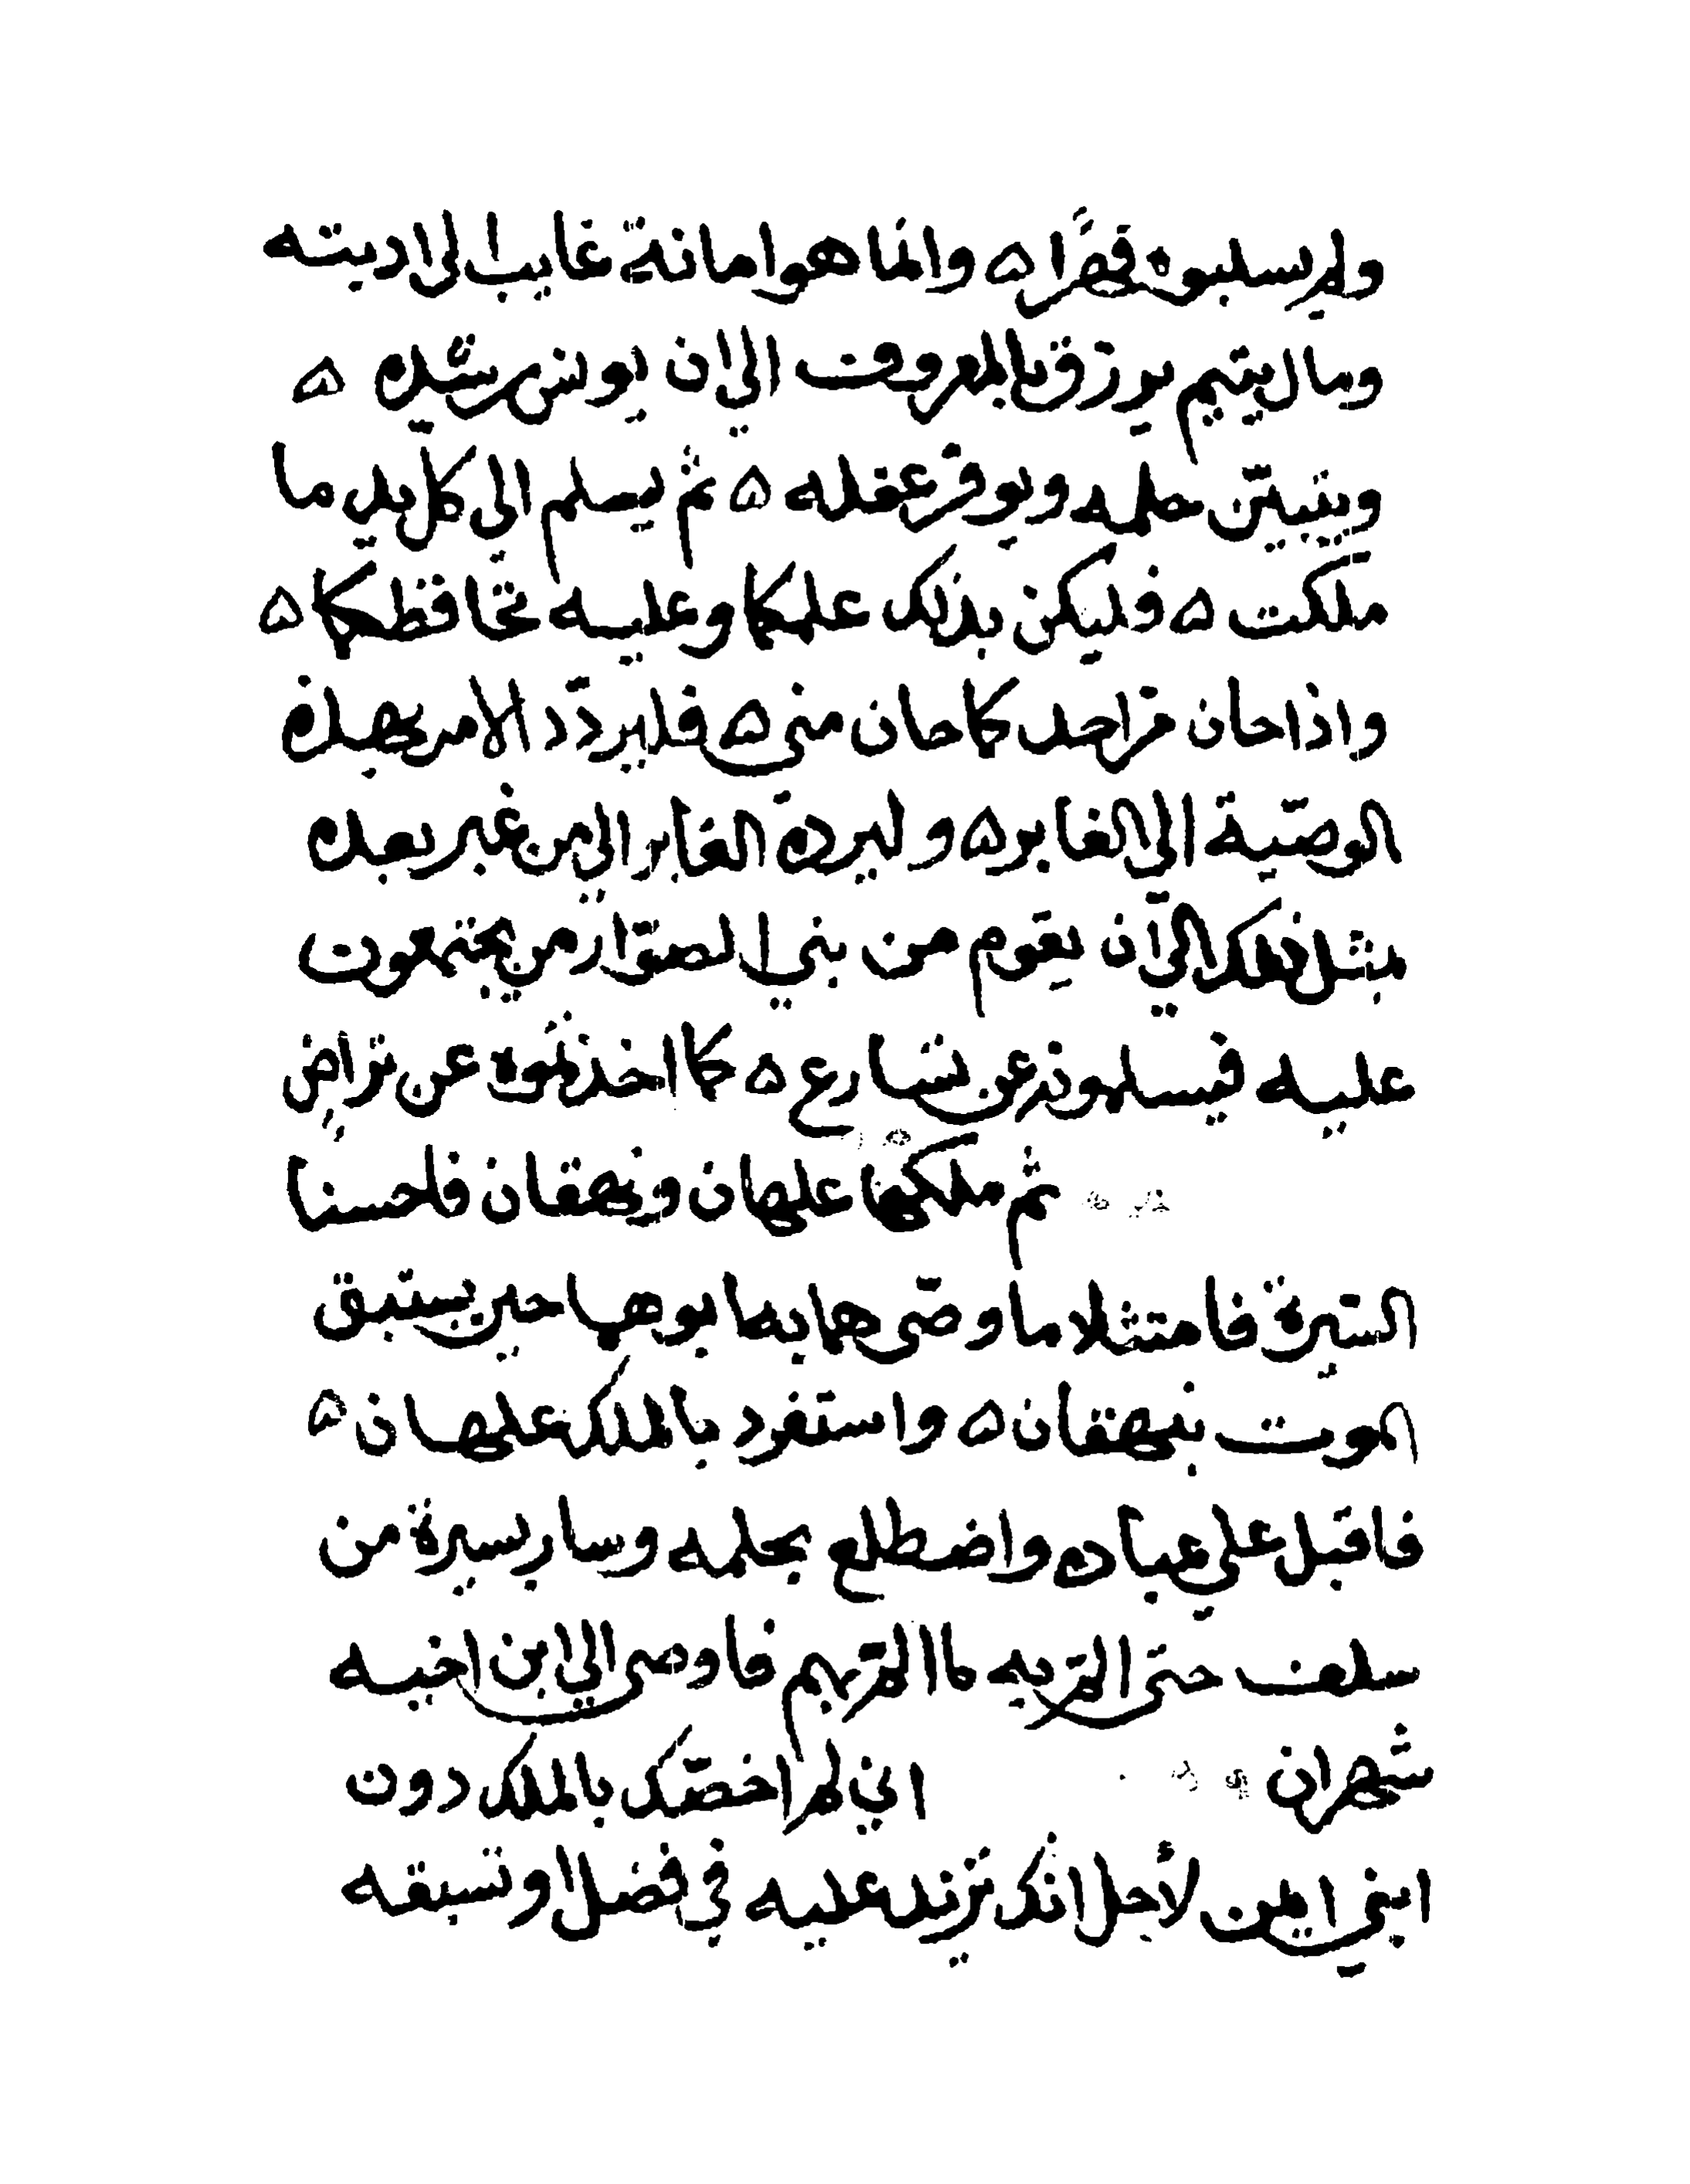 ولم يسلبوه قهرًا ه وانما هو امانة غايب الى اوبته
ومال يتيم يرزق بالمعروف الي ان يونس رشده ه
ويتبيّن حلمه ويوفر عقله ه ثم يسلم الى كل يد ما
ملكت ه فليكن بذلك علمكما وعليه تحافظكما ه
واذا حان من احد كما حان مني ه فليردّد الامر بهذه
الوصّية الي الغابر ه وليرده الغابر الي من غبر بعده
بمثل ذلك الي ان يقوم من بني الصوّار من يجتمعون
عليه فيسلمونه عن تسارع ه كما اخذتموه عن تراضٍ
ثم ملكها علهان ونهفان فاحسنا
السّيرة فامتثلا ما وصّى هما به ابوهما حين يستبق
الموت بنهفان ه واستفرد بالملك علهان ه
فاقبل علي عباده واضطلع بحلمه وسار بسيرة من
سلف حتى المّ به ما المّ بهم فاوصى الي ابن اخيه
شهران اني لم اخصّك بالملك دون
ابني ايمن لأجل انك تزيد عليه في فضل او تسبقه